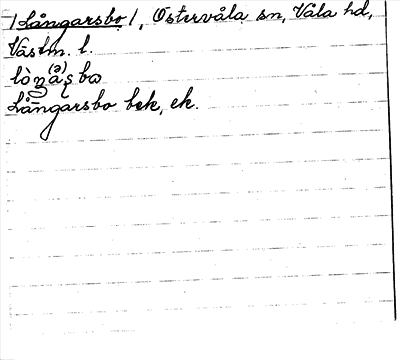 /Långarsbo/, Östervåla sn, Våla hd,
Västm. l.
Långarsbo bek, ek.